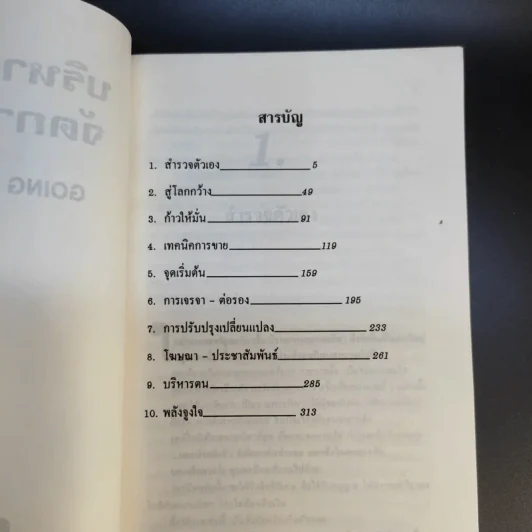 สารบัญ
1. สำรวจตัวเอง 5
2. สู่โลกกว้าง 49
3. ก้าวให้มั่น 91
4. เทคนิคการขาย 119
5. จุดเริ่มต้น 159
6. การเจรจา - ต่อรอง 195
7. การปรับปรุงเปลี่ยนแปลง 233
8. โฆษณา - ประชาสัมพันธ์ 261
9. บริหารตน 285
10. พลังจูงใจ 313